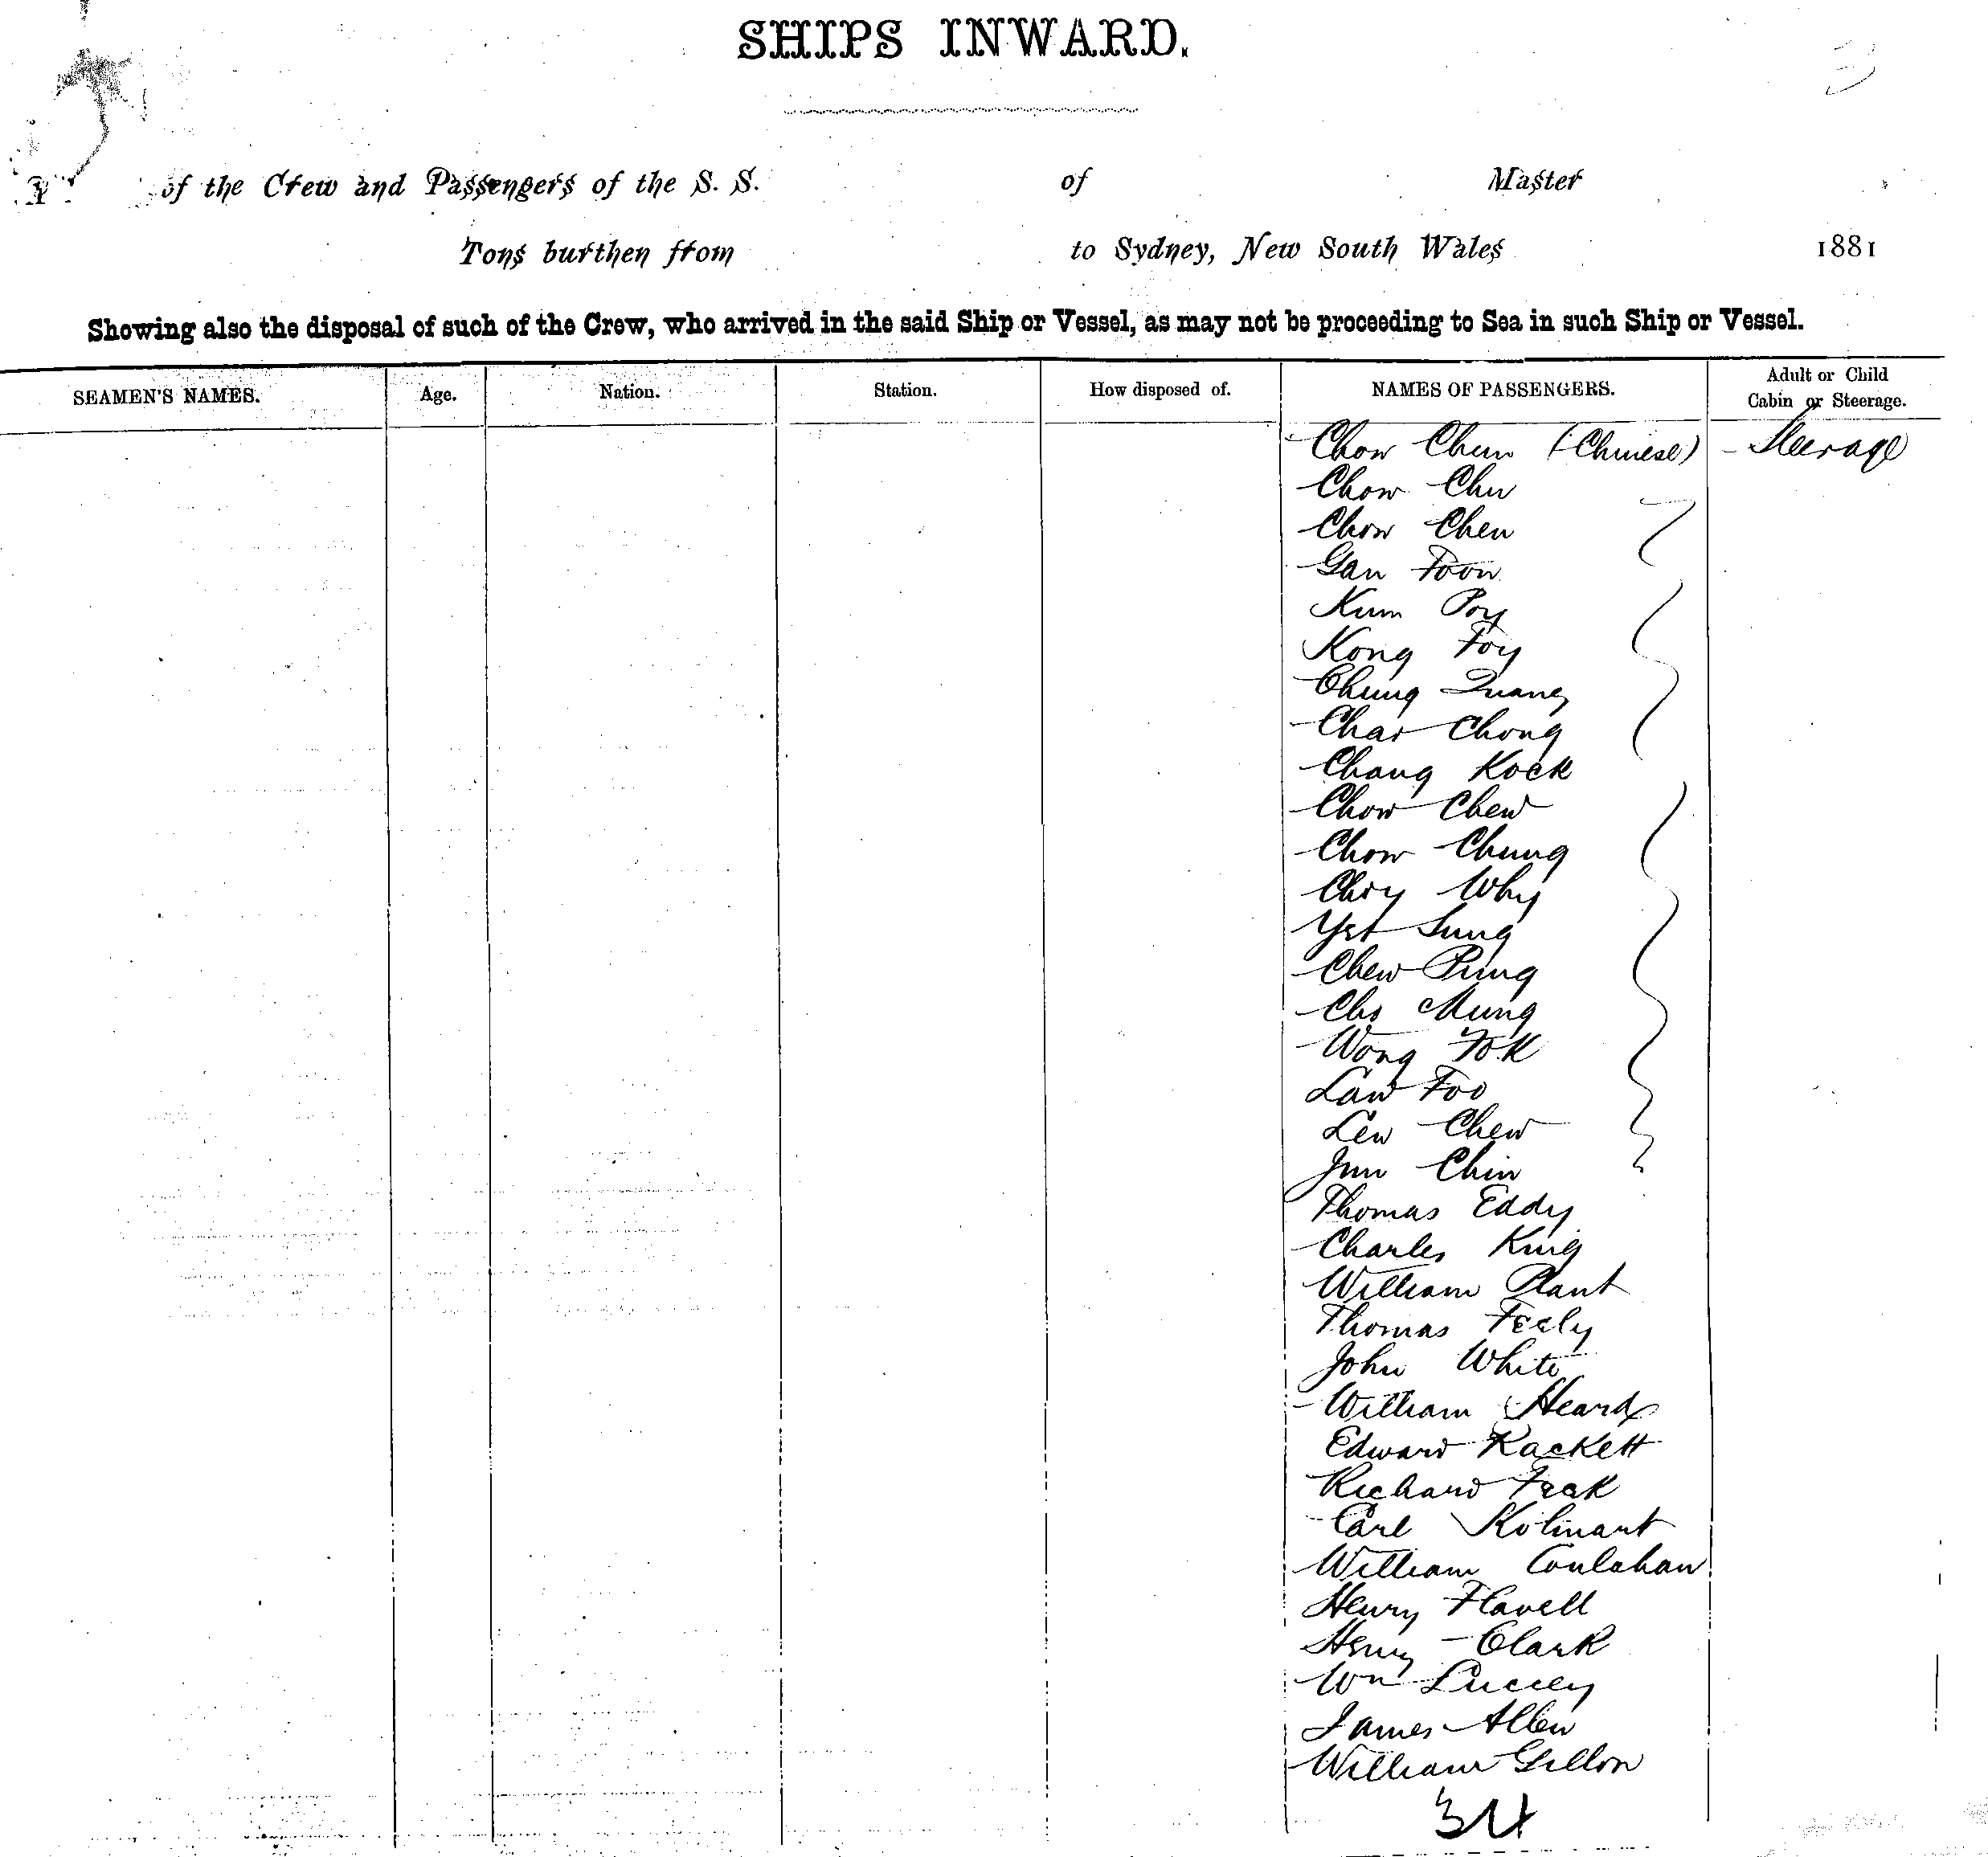 SHIPS INWARD.
of the Crew and Passengers of the S. S. of Master
Tons burthen from to Sydney, New South Wales 1881
Showing also the disposal of such of the Crew, who arrived in the said Ship or Vessel, as may not be proceeding to Sea in such Ship or Vessel.
SEAMEN'S NAMES. Age. Nation. Station. How disposed of. NAMES OF PASSENGERS. Adult or Child
Cabin or Steerage.
Chow Chun (Chinese) - Steerage
Chow Chu
Chow Chen
Gan Foon
Kum Poy
Kong Foy
Chung Quang
Char Chong
Chang Kock
Chow Chew
Chow Chung
Choy Why
Yet Sung
Chew Pung
Cho Mung
Wong Fok
Law Foo
Lew Chew
Jun Chin
Thomas Eddy
Charles King
William Plant
Thomas Feely
John White
William Heard
Edward Rackett
Richard Feak
Carl
William Coulahan
Henry Flavell
Henry Clark
Wm Lucey
James Allen
William Gillon
34